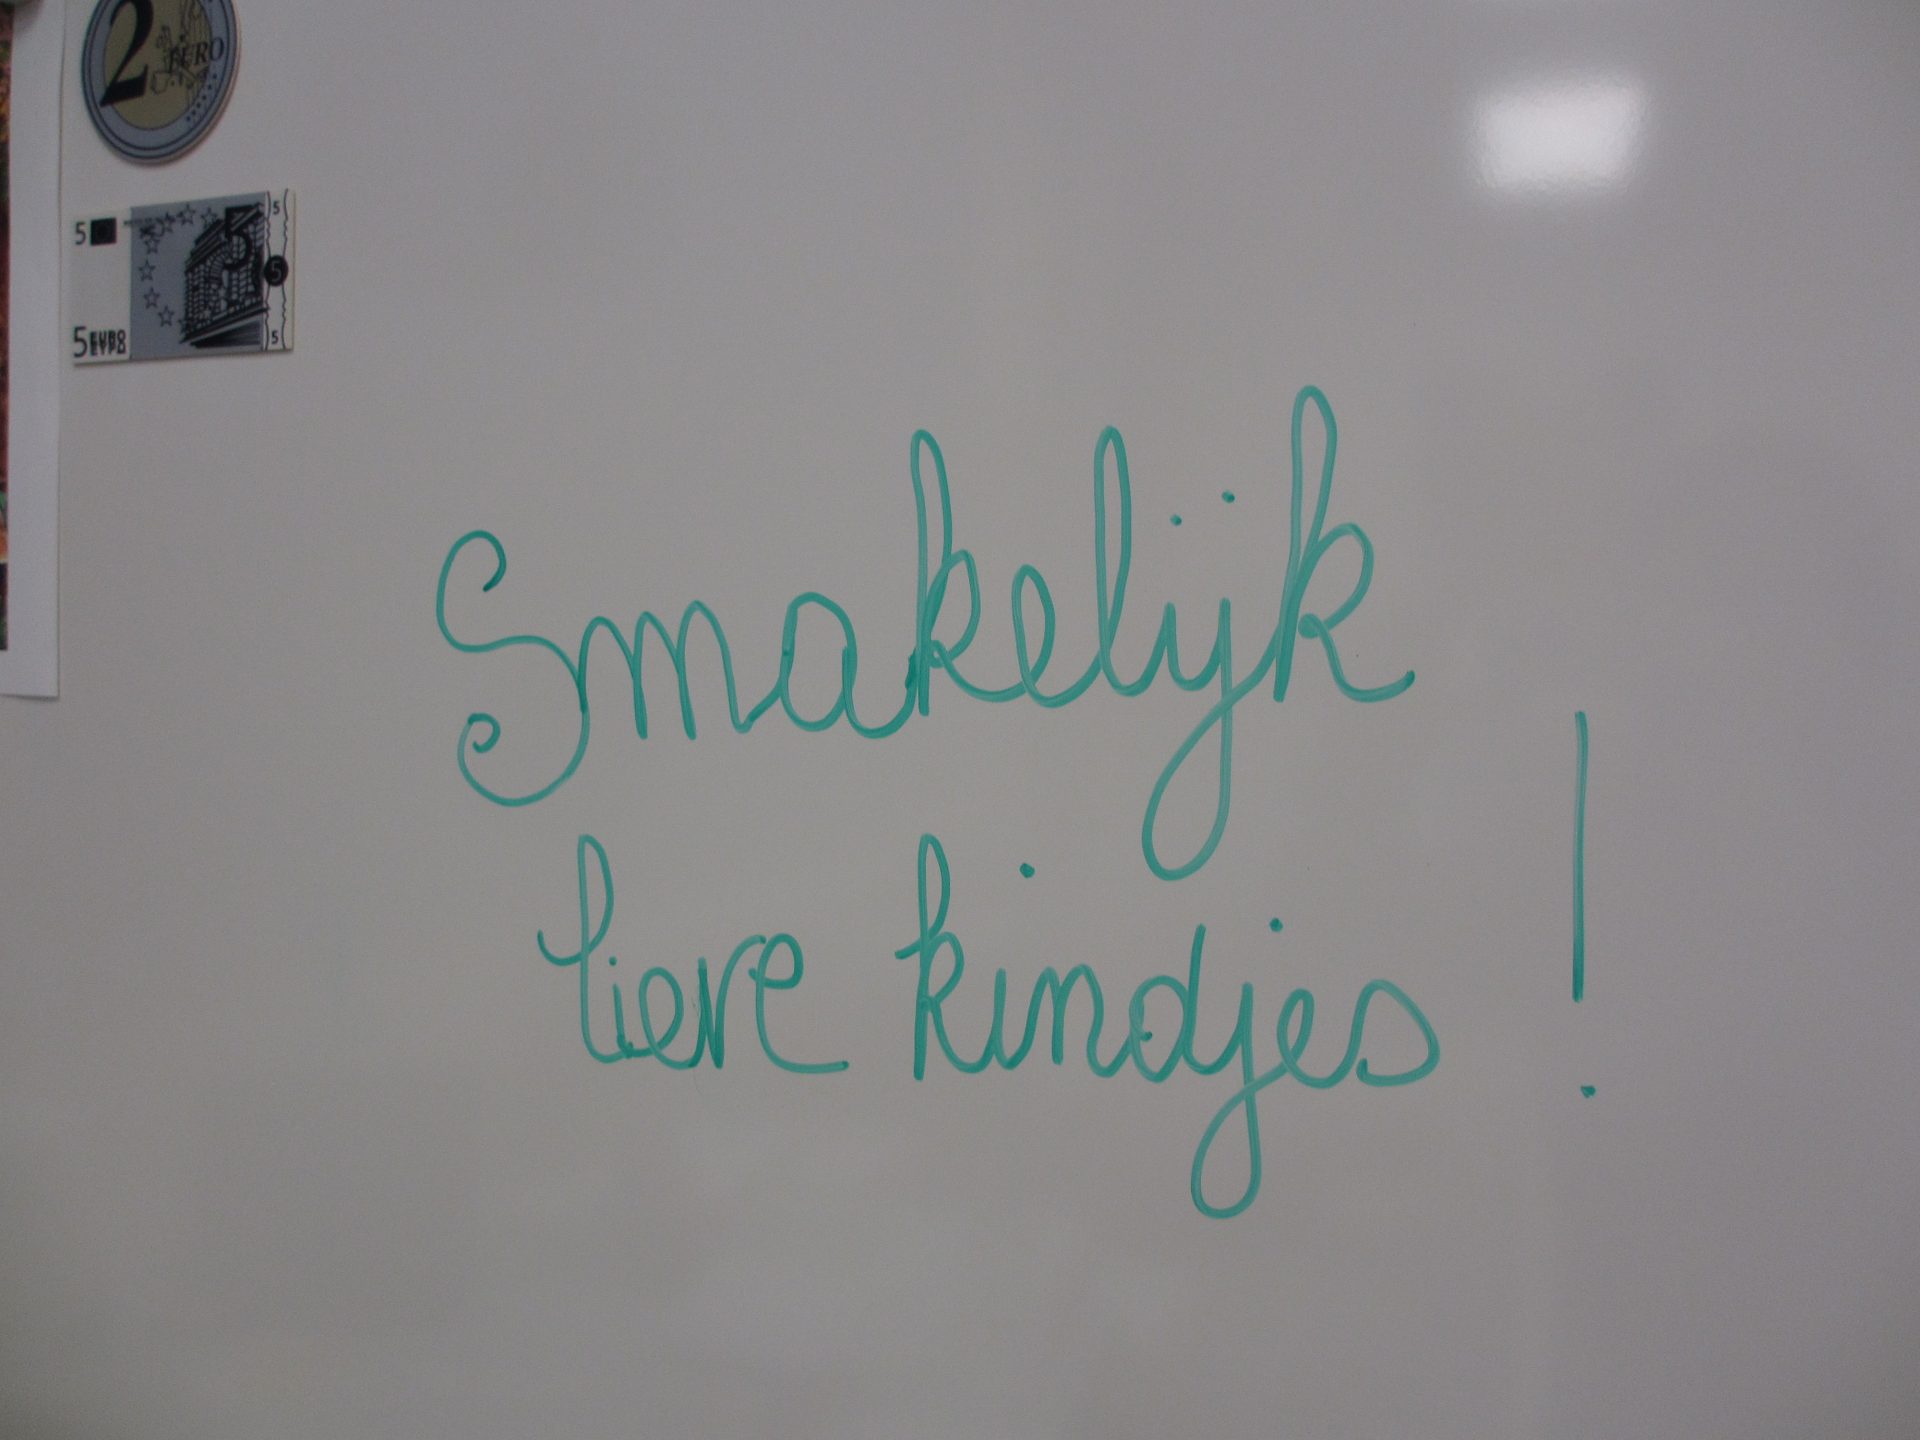 2 EURO
5 5
5
5
5 EURO 5
ΕΥΡΩ
Smakelijk
lieve kindjes !